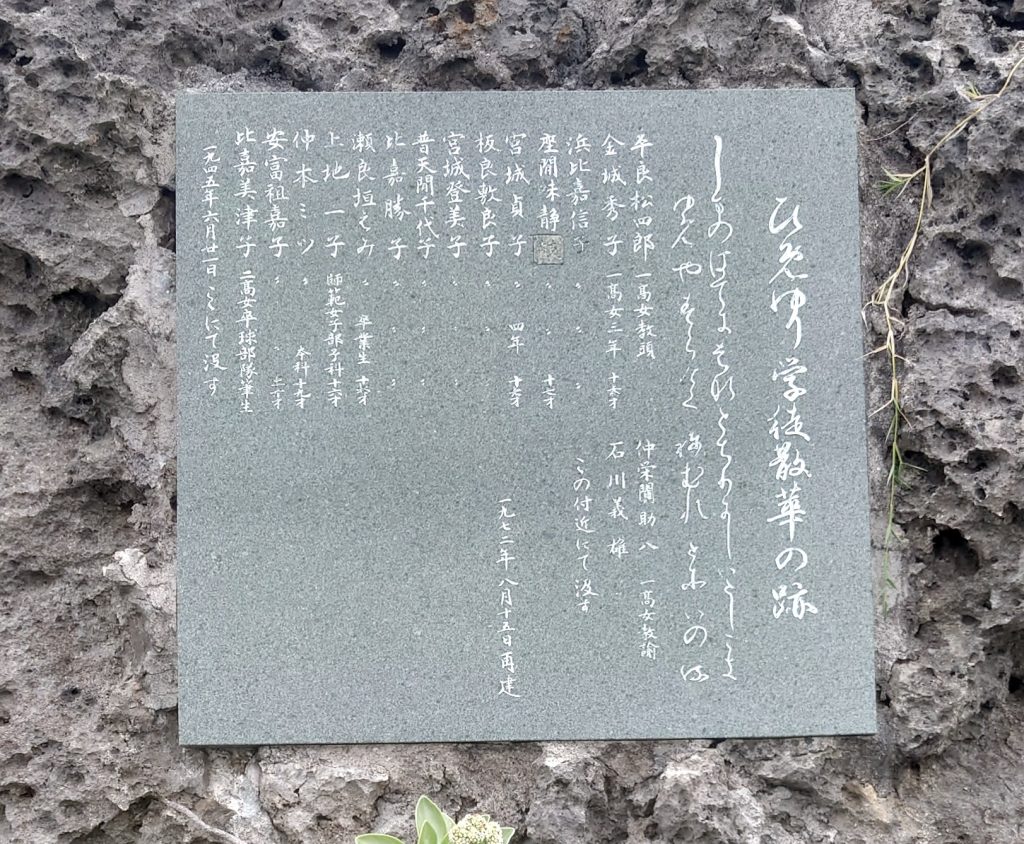 ひめゆり学徒散華の跡
しまのはて
ゆめやすらけく ねむれ とぞ いのる
平良松四郎 一高女教頭 仲栄間助八 一高女教諭
金城秀子 一高女三年 十六才 石川義雄 〃
浜比嘉信子 〃 〃 〃 この付近にて没す
座間味静 〃 〃 十六才
宮城貞子 〃 四年 十七才 一九七二年八月十五日再建
板良敷良子 〃 〃 〃
宮城登美子 〃 〃 〃
普天間千代子 〃 〃 〃
比嘉勝子 〃 〃 〃
瀬良垣えみ 〃 卒業生 十七才
上地一子 師範女子部予科十六才
仲本ミツ 〃 本科十九才
安富祖嘉子 〃 〃 二十才
比嘉美津子 二高女卒球部隊筆生
一九四五年六月廿一日ここにて没す